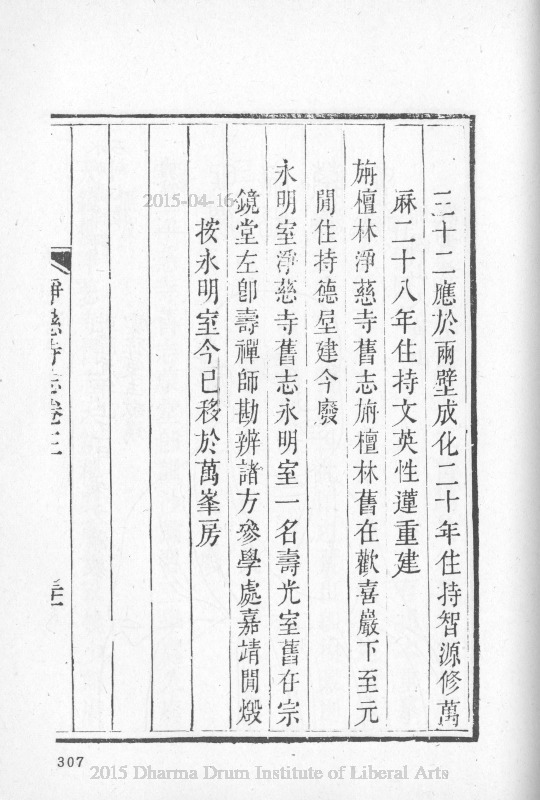 三十二應於兩壁成化二十年住持智源修萬
厤二十八年住持文英性蓮重建
旃檀林淨慈寺舊志旃檀林舊在歡喜巖下至元
閒住持德垕建今廢
永明室淨慈寺舊志永明室一名壽光室舊在宗
鏡堂左卽壽禪師勘辨諸方參學處嘉靖閒燬
按永明室今已移於萬峯房
淨慈寺志卷二
307
2015-04-16
2015 Dharma Drum Institute of Liberal Arts